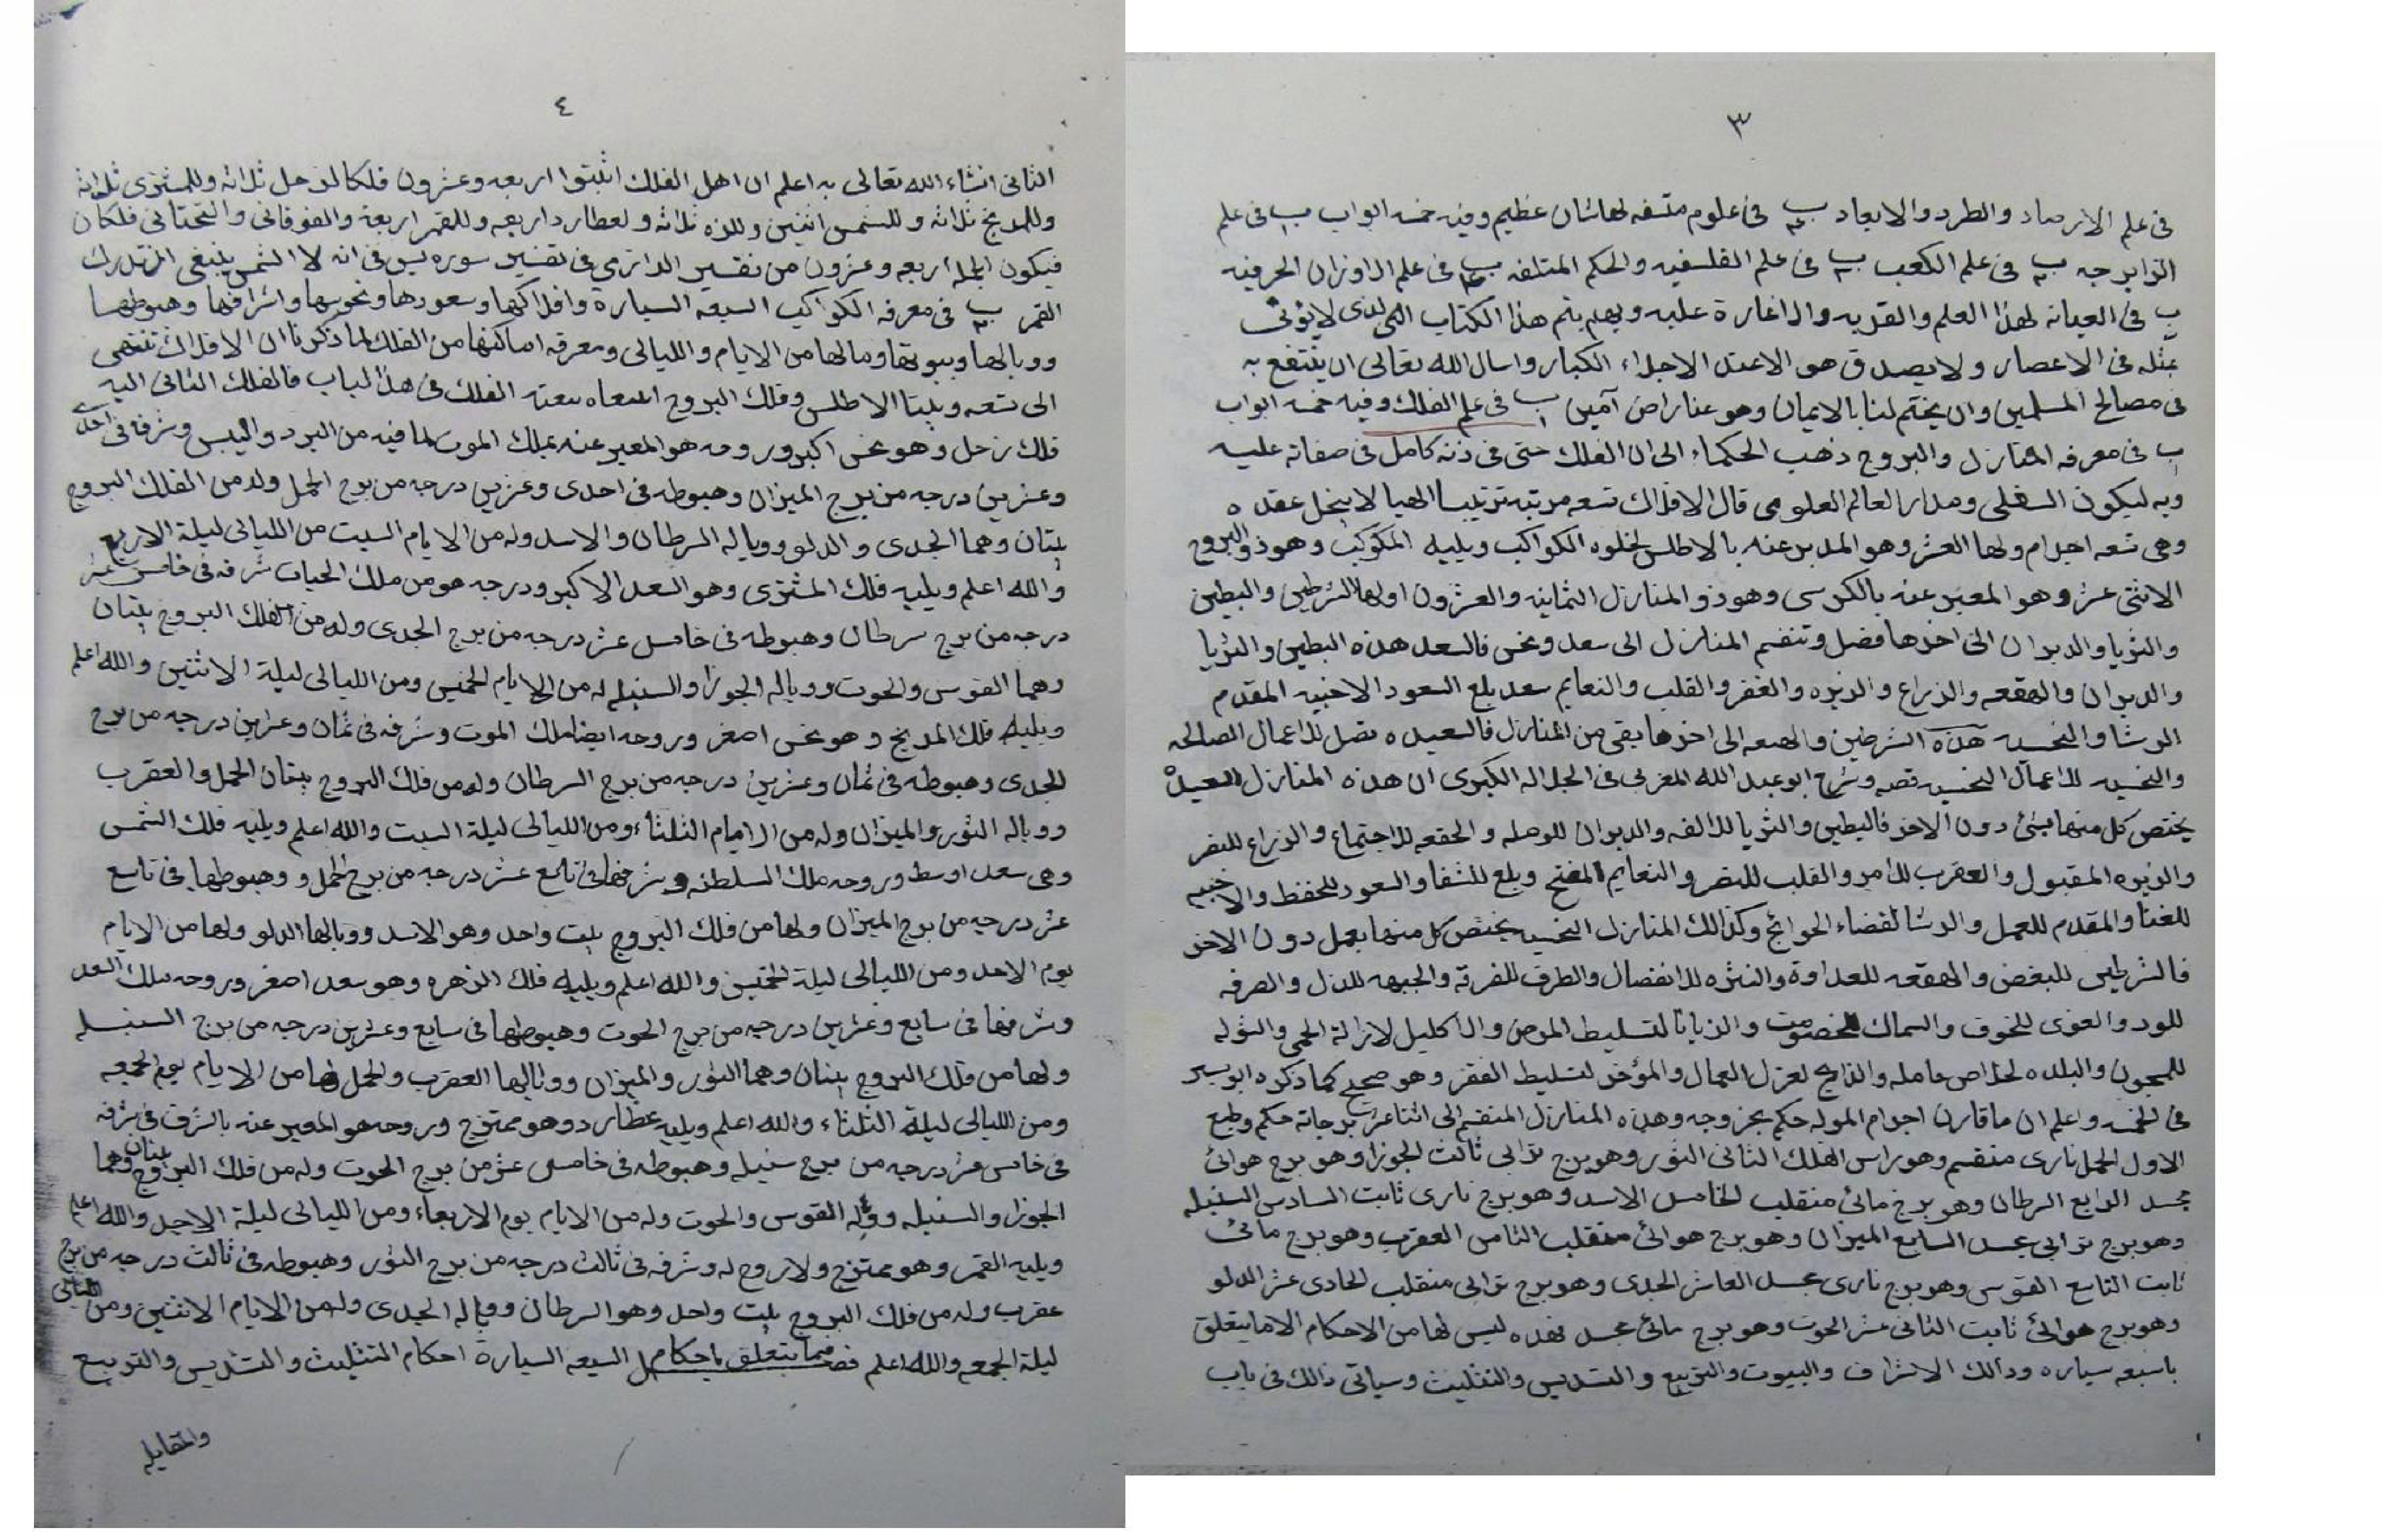 ٣
فى علم الارصاد والطرد والابعاد ب فى علوم متسفه لهاشان عظيم وفيه خمسه ابواب ب فى علم
الزايرجه ب فى علم الكعب ب فى علم الفلسفيه والحكم المتلفه ب فى علم الاوزان الحرفيه
ب فى العيانه لهذا العلم والقديه والاغارة عليه وبهم يتم هذا الكتاب الذى لايؤتى
بمثله فى الاعصار ولا يصدق هو الاعتل الاجلاء الكبار واسال الله تعالى ان ينتفع به
فى مصالح المسلمين وان يختم لنا بالايمان وهو عنا راض آمين ب فى علم الفلك وفيه خمسه ابواب
ب فى معرفه المنازل والبروج ذهب الحكماء الى ان الفلك حتى فى ذته كامل فى صفاته عليه
وبه ليكون السفلى ومدار العالم العلوى قال الافلاك تسعه مرتبه ترتيبا الهيا لا ينحل عقده
وهى تسعه اجرام ولها العرش وهو المدبر عنه بالاطلس لخلوه الكواكب ويليه المكوكب وهو ذو البروج
الاثنى عشر وهو المعبر عنه بالكرسى وهو ذو المنازل الثمانيه والعشرون اولها الشرطين والبطين
والثريا والدبران الى اخرها فصل وتنقسم المنازل الى سعد ونحس فالسعد هذه البطين والثريا
والدبران والهقعه والذراع والزبره والغفر والقلب والنعايم سعد بلع السعود الاخبيه المقدم
الرشا والنحسيه هذه الشرطين والهنعه الى اخر ما بقى من المنازل فالسعيده تصل للاعمال الصالحه
والنحسيه للاعمال النحسيه قصه وشرح ابو عبد الله المغربى فى الجلاله الكبرى ان هذه المنازل السعيده
يختص كل منها بشئ دون الاخر فالبطين والثريا للالفه والدبران للوصله والحقعه للاجتماع والذراع للنصر
والزبره المقبول والعقرب للامر والقلب للنصر والنعايم المفتح وبلع للشفا والسعود للحفظ والاخبيه
للغنا والمقدم للعمل والرشا لقضاء الحوائج وكذالك المنازل النحسيه يختص كل منها بعمل دون الاخر
فالشرطين للبغض والهقعه للعداوة والنثره للانفصال والطرف للفرقة والجبهه للذل والصرفه
للود والعوى للخوف والسماك للخصومت والزبانا لتسليط المرض والاكليل لازالة الحمى والشوله
للمجون والبلده لخلاص حامله والذابح لعزل العمال والمؤخر لتسليط الفقر وهو صحيح كما ذكره ابو سير
فى الخمسه واعلم ان ما قارن اجرام الموله حكم بجز وجه وهذه المنازل المنقسم الى اثنا عشر برجاته حكم وطبع
الاول الحمل نارى منقسم وهو راس الفلك الثانى الثور وهو برج ترابى ثالث الجوزا وهو برج هوائى
مجسد الرابع السرطان وهو برج مائى منقلب الخامس الاسد وهو برج نارى ثابت السادس السنبله
وهو برج ترابى مجسد السابع الميزان وهو برج هوائى منقلب الثامن العقرب وهو برج مائى
ثابت التاسع القوس وهو برج نارى مجسد العاشر الجدى وهو برج ترابى منقلب الحادى عشر الدلو
وهو برج هوائى ثابت الثانى عشر الحوت وهو برج مائى مجسد فهذه ليس لها من الاحكام الا ما يتعلق
باسبعه سياره ودالك الاشراف والبيوت والتربيع والتسديس والتثليث وسياتى ذالك فى باب
٤
الثانى انشاء الله تعالى به اعلم ان اهل الفلك اثبتوا اربعه وعشرون فلكا لزحل ثلاثه وللمشترى ثلاثه
وللمريخ ثلاثه وللشمس اثنين وللزه ثلاثه ولعطارد اربعه وللقمر اربعة والفوقانى والتحتانى فلكان
فيكون الجمله اربعه وعشرون من تفسير الرازى فى تفسير سوره يس فى انه لا الشمس ينبغى ان تدرك
القمر ب فى معرفه الكواكب السبعه السيارة وافلاكها وسعودها ونحوسها واشرافها وهبوطها
ووبالها وبيوتها ومالها من الايام والليالى ومعرفه اماكنها من الفلك لما ذكرنا ان الافلاك تنتهى
الى تسعه وبلينا الاطلس وفلك البروج سعته الفلك فى هذا الباب فالفلك الثانى اليه
فلك زحل وهو نحس اكبر وروحه هو المعبر عنه بملك الموت لما فيه من البرد واليبس وشرفه فى احدى
وعشرين درجه من برج الميزان وهبوطه فى احدى وعشرين درجه من برج الحمل وله من الفلك البروج
بيتان وهما الجدى والدلو ووباله السرطان والاسد وله من الايام السبت من الليالى ليلة الاربع
والله اعلم ويليه فلك المشترى وهو السعد الاكبر ودرجه هو من ملك الحيات شرفه فى خامس عشر
درجه من برج سرطان وهبوطه فى خامس عشر درجه من برج الجدى وله من الفلك البروج بيتان
وهما القوس والحوت ووباله الجوزا والسنبله له من الايام الخميس ومن الليالى ليلة الاثنين والله اعلم
ويليه فلك المريخ وهو نحس اصغر وروحه ايضا ملك الموت وشرفه فى ثمان وعشرين درجه من برج
الجدى وهبوطه فى ثمان وعشرين درجه من برج السرطان وله من فلك البروج بيتان الحمل والعقرب
ووباله الثور والميزان وله من الايام الثلثاء ومن الليالى ليلة السبت والله اعلم ويليه فلك الشمس
وهى سعد اوسط وروحه ملك السلطنه وشرفها فى تاسع عشر درجه من برج الحمل و وهبوطها فى تاسع
عشر درجه من برج الميزان ولها من فلك البروج بيت واحد وهو الاسد ووبالها الدلو ولها من الايام
يوم الاحد ومن الليالى ليلة الخميس والله اعلم ويليه فلك الزهره وهو سعد اصغر وروحه ملك السعد
وشرفها فى سابع وعشرين درجه من برج الحوت وهبوطها فى سابع وعشرين درجه من برج السنبله
ولها من فلك البروج بيتان وهما الثور والميزان ووبالها العقرب والحمل لها من الايام يوم الجمعه
ومن الليالى ليلة الثلثاء والله اعلم ويليه عطارد وهو ممتزج وروحه هو المعبر عنه بالشرق فى شرفه
فى خامس عشر درجه من برج سنبله وهبوطه فى خامس عشر من برج الحوت وله من فلك البروج بيتان وهما
الجوزا والسنبله ووباله القوس والحوت وله من الايام يوم الاربعاء ومن الليالى ليلة الاحد والله اعلم
ويليه القمر وهو ممتزج ولا روح له وشرفه فى ثالث درجه من برج الثور وهبوطه فى ثالث درجه من برج
عقرب وله من فلك البروج بيت واحد وهو السرطان ووباله الجدى وله من الايام الاثنين ومن الليالى
ليلة الجمعه والله اعلم فصل فيما يتعلق باحكام السبعه السيارة احكام التثليث والتسديس والتربيع
والمقابله